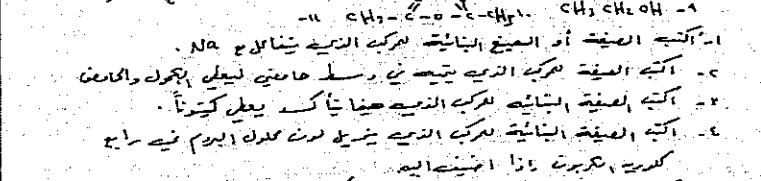 ٩- CH3 CH2 OH ١٠. CH3-C-O-C-CH3 ١١-
١- اكتب الصيغة أو الصيغ البنائية للمركب الذي يتفاعل مع Na .
٢- اكتب الصيغة للمركب الذي يتميه في وسط حامضي ليعطي الكحول والحامض
٣- اكتب الصيغة البنائية للمركب الذي حينما يتأكسد يعطي كيتوناً .
٤- اكتب الصيغة البنائية للمركب الذي يزيل لون محلول البروم في رابع
كلوريد الكربون إذا اضيف اليه